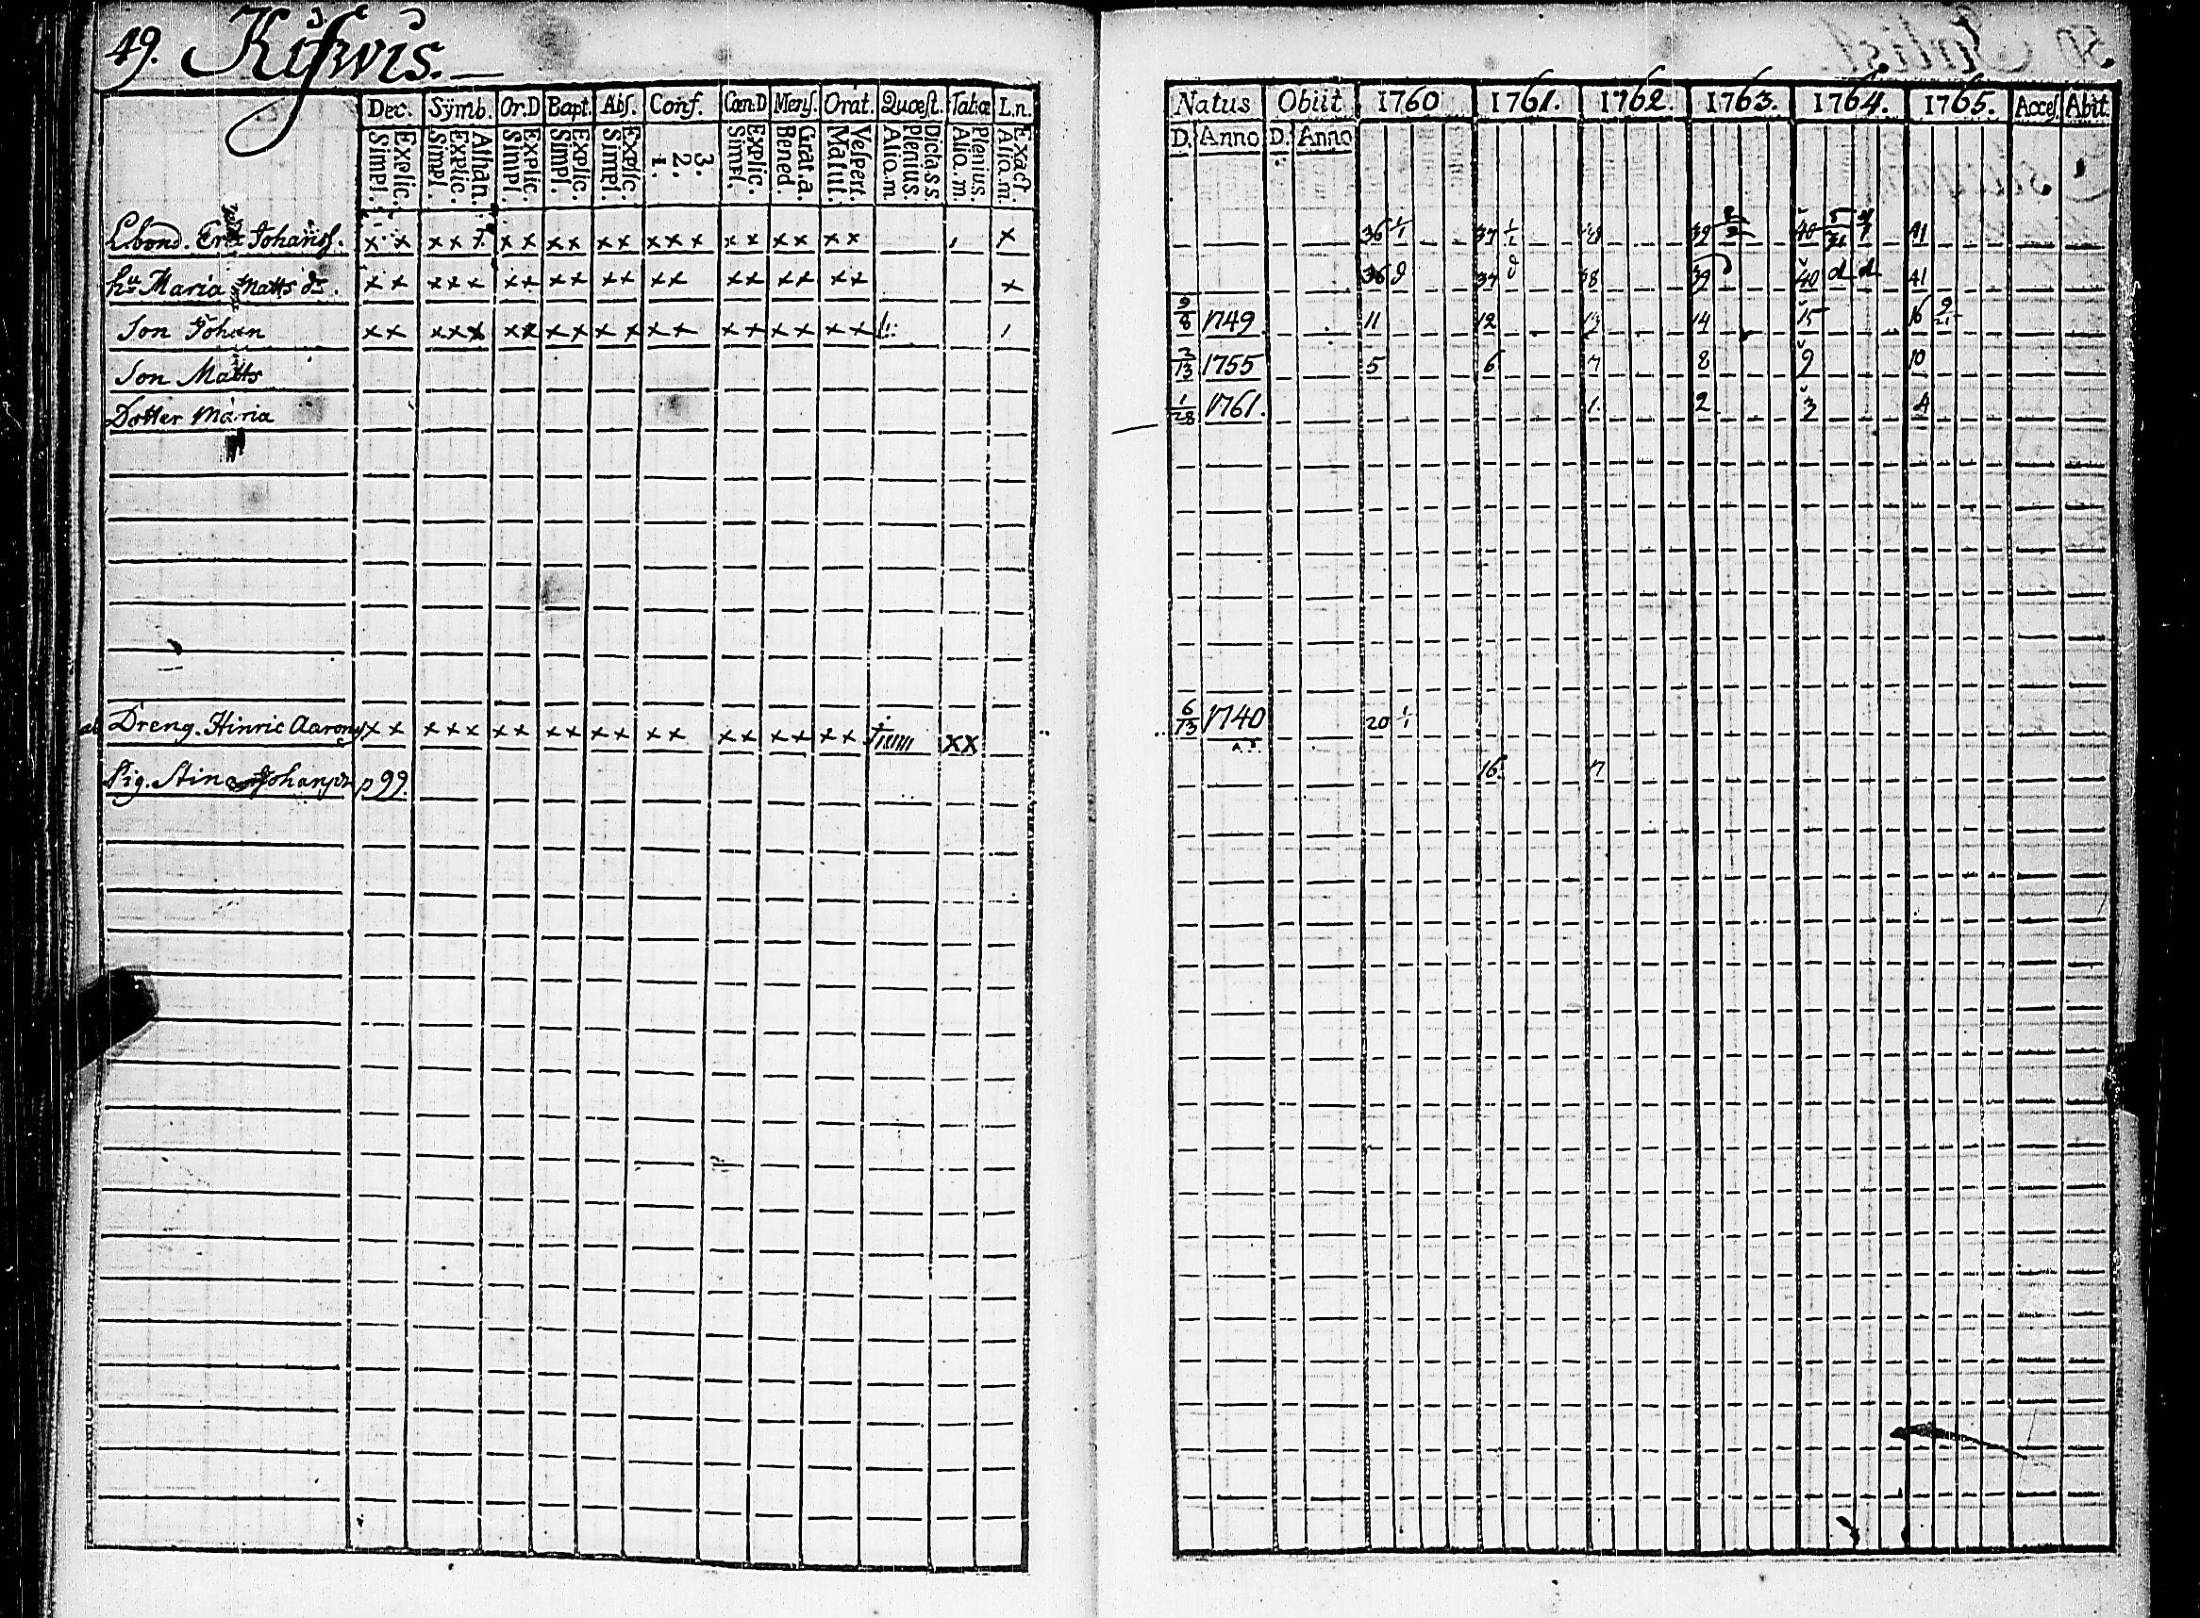 49. Kiskvis.
Dec. Symb. Or.D Bapt. Abs. Conf. Cœn.D Mens. Orat. Quæst. Tabæ L.n.
Explic. Simpl. Athan. Explic. Simpl. Explic. Simpl. Explic. Simpl. Explic. Simpl. 3. 2. 1. Explic. Simpl. Grat.a. Bened. Vespert. Matut. Dictass Plenius. Aliq.m Plenius. Aliq.m. Exact. Aliq.m.
Ebond. Er. Johanss. x x x x x x x x x x x x x x x x x x x x
hu Maria Matts dr. x x x x x x x x x x x x x x x x x x x x
Son Johan x x x x x x x x x x x x x x x x x x x
Son Matts
Dotter Maria
Dreng. Hinric Aarons x x x x x x x x x x x x x x x x x x x x x
Pig. Stina Johansdr p 99.
Natus Obiit 1760 1761. 1762. 1763. 1764. 1765. Acces. Abit.
D. Anno D. Anno
36 1/1 37 1/1 39 40 41
36 37 38 39 40 d d 41
9/8 1749. 11 12 14 15 16
2/13 1755 5 6 7 8 9 10
1/28 1761. 1. 2. 3 4
6/13 1740 20 1/1
16. 7